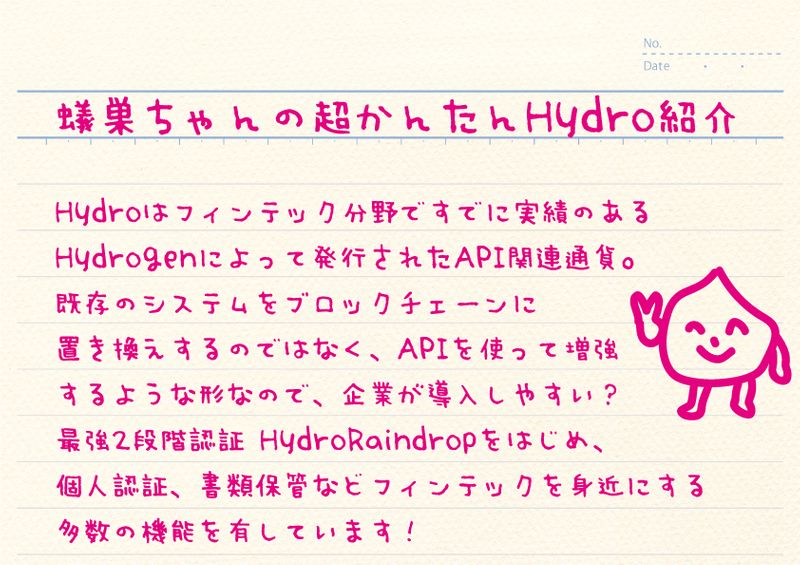 No.
Date
蟻巣ちゃんの超かんたんHydro紹介
Hydroはフィンテック分野ですでに実績のある
Hydrogenによって発行されたAPI関連通貨。
既存のシステムをブロックチェーンに
置き換えするのではなく、APIを使って増強
するような形なので、企業が導入しやすい？
最強2段階認証 HydroRaindropをはじめ、
個人認証、書類保管などフィンテックを身近にする
多数の機能を有しています！